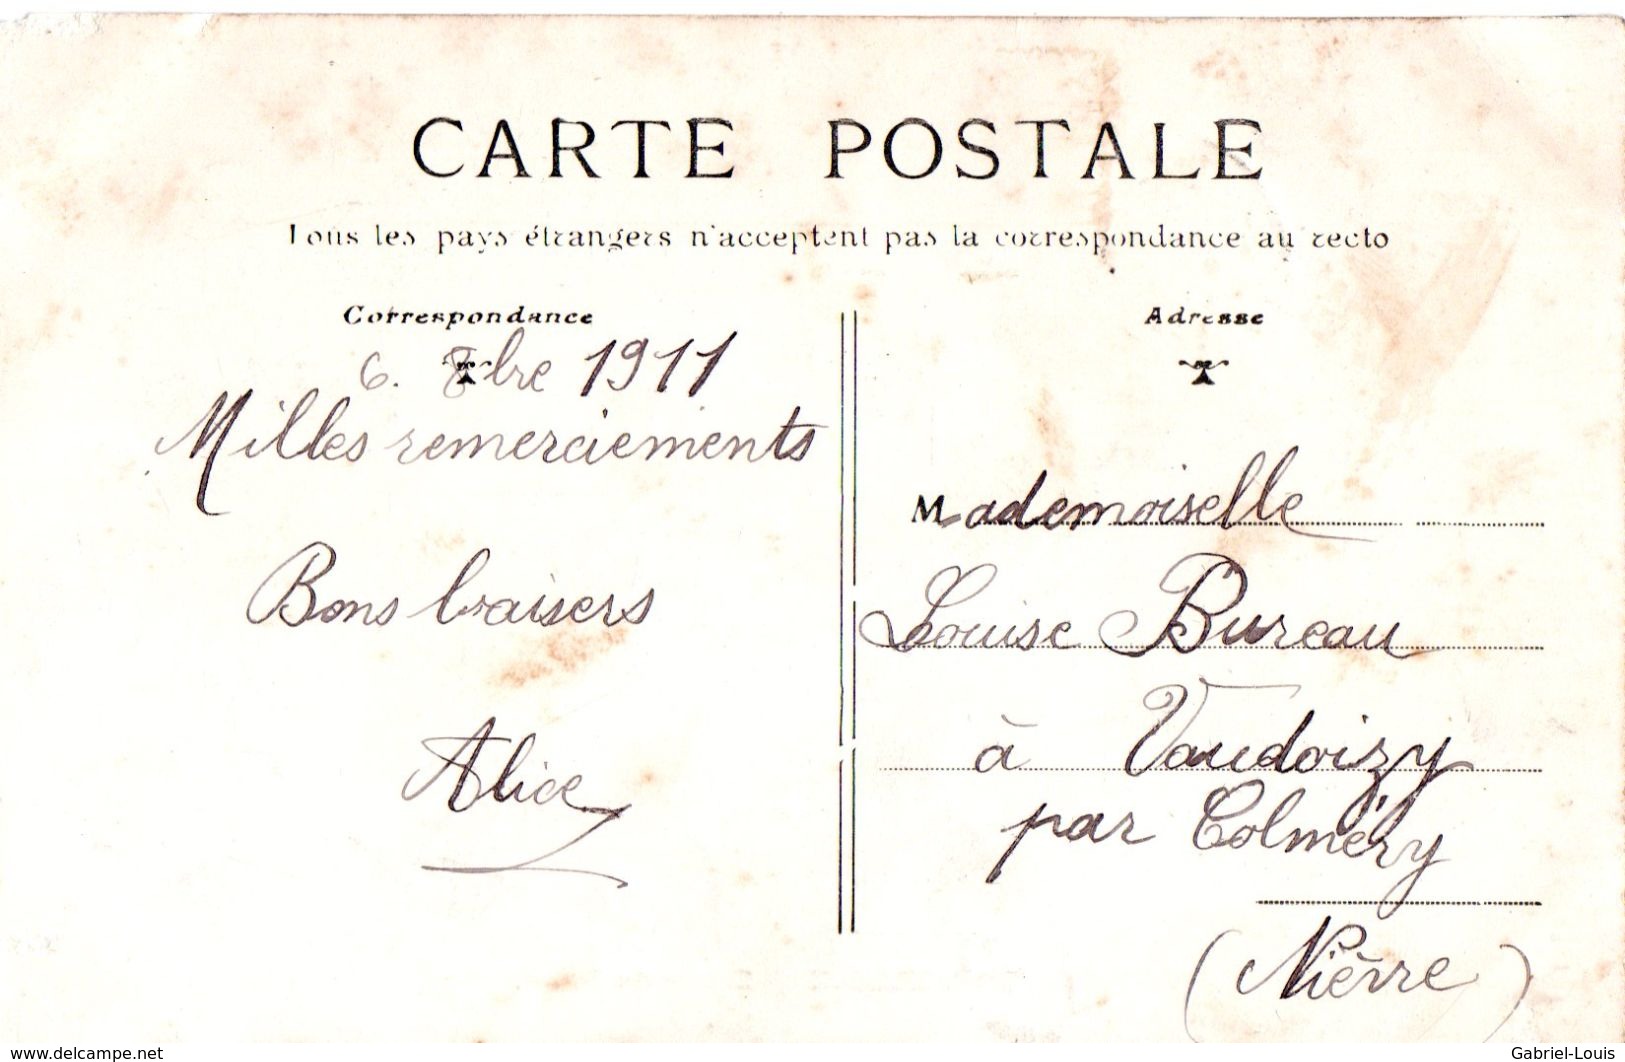 CARTE POSTALE
Tous les pays étrangers n'acceptent pas la correspondance au recto
Correspondance
6. 8bre 1911
Milles remerciements
Bons baisers
Alice
Adresse
Mademoiselle
Louise Bureau
à Vaudoizy
par Colméry
(Nièvre)
www.delcampe.net
Gabriel-Louis